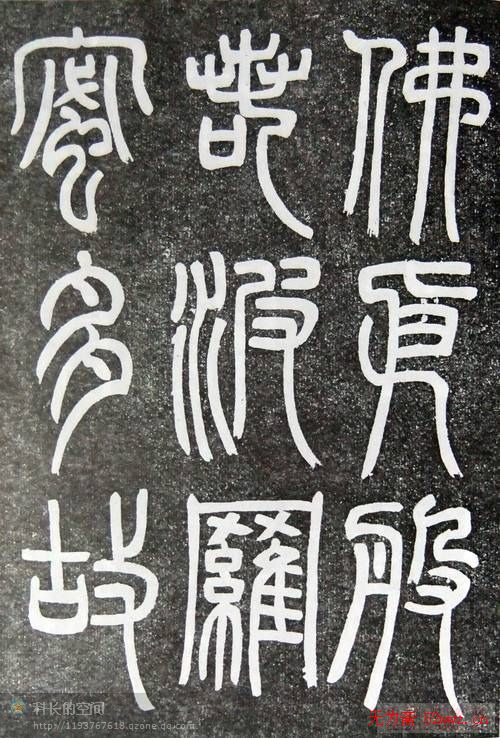 佛依般
若波羅
蜜多故
科长的空间
http://1193767618.qzone.qq.com